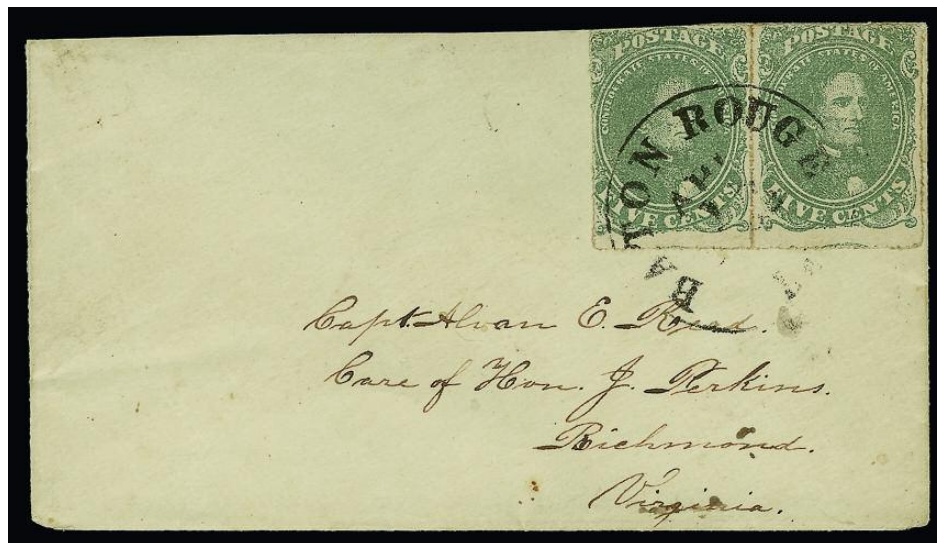 POSTAGE
CONFEDERATE STATES OF AMERICA
FIVE CENTS
POSTAGE
CONFEDERATE STATES OF AMERICA
FIVE CENTS
BATON ROUGE
La
Capt. Alvan E. Read.
Care of Hon. J. Perkins.
Richmond.
Virginia.